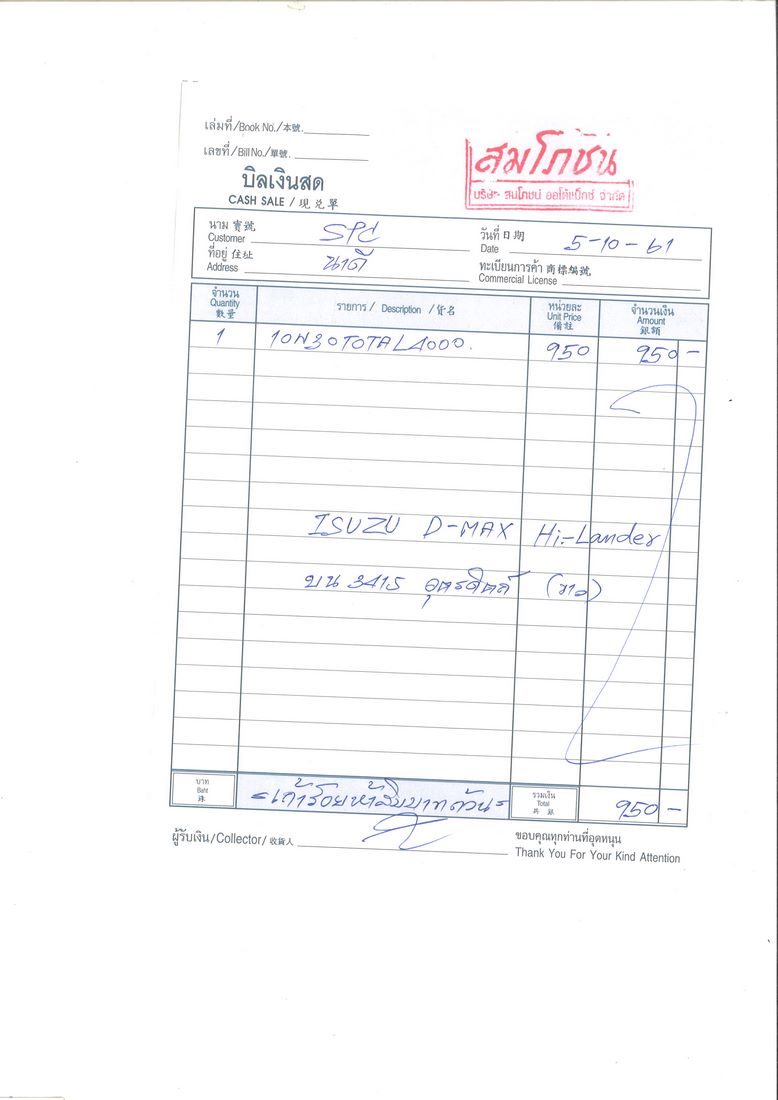 เล่มที่/Book No./本號.
เลขที่/Bill No./單號.
บิลเงินสด
CASH SALE / 現兑單
สมโภชน์
บริษัท สมโภชน์ ออโต้เซ็กซ์ จำกัด
นาม 寶號 Customer SPC
วันที่ 日期 Date 5-10-61
ที่อยู่ 住址 Address นาดี
ทะเบียนการค้า 商標編號 Commercial License
จำนวน Quantity 數量 รายการ / Description / 貨名 หน่วยละ Unit Price 備註 จำนวนเงิน Amount 銀額
1 10W30 TOTAL 4000. 950 950 -
ISUZU D-MAX Hi-Lander
บน 3415 อุตรดิตถ์
บาท Baht 銖 = เก้าร้อยห้าสิบบาทถ้วน = รวมเงิน Total 共銀 950 -
ผู้รับเงิน/Collector/收貨人
ขอบคุณทุกท่านที่อุดหนุน
Thank You For Your Kind Attention